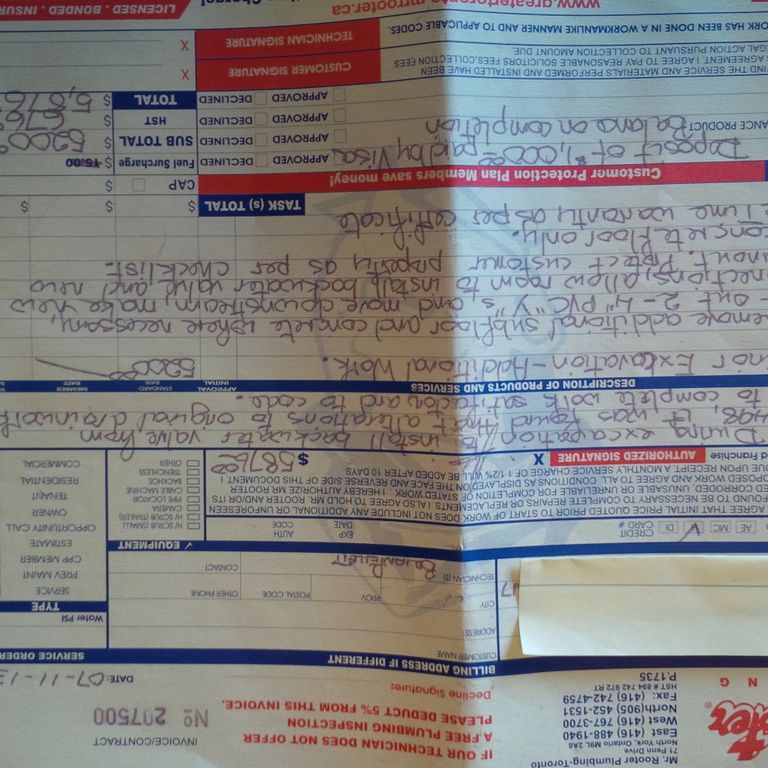 Mr. Rooter Plumbing-Toronto
71 Penn Drive
North York, Ontario M9L 2A6
East (416) 488-1940
West (416) 767-3700
North (905) 452-1531
Fax: (416) 742-4759
HST # 894 742 972 RT
P.1735
N G
IF OUR TECHNICIAN DOES NOT OFFER
A FREE PLUMBING INSPECTION
PLEASE DEDUCT 5% FROM THIS INVOICE.
Decline Signature:
INVOICE/CONTRACT
No 207500
DATE: 07-11-13
BILLING ADDRESS IF DIFFERENT
SERVICE ORDER
CUSTOMER NAME
ADDRESS
CITY
PROV
POSTAL CODE
OTHER PHONE
TECHNICIAN (S)
CONTACT
Water PSI
TYPE
SERVICE
PREV MAINT
CPP MEMBER
ESTIMATE
OPPORTUNITY CALL
OWNER
TENANT
RESIDENTIAL
COMMERCIAL
EQUIPMENT
H/ SCRUB (SMALL)
H/ SCRUB (TRAILER)
CAMERA
PIPE LOCATOR
CABLE MACHINE
BACKHOE
TRENCHLESS
OTHER
CREDIT CARD #
AE MC DI V
EXP DATE
AUTH CODE
AGREE THAT INITIAL PRICE QUOTED PRIOR TO START OF WORK DOES NOT INCLUDE ANY ADDITIONAL OR UNFORESEEN
FOUND TO BE NECESSARY TO COMPLETE REPAIRS OR REPLACEMENTS. I ALSO AGREE TO HOLD MR. ROOTER AND/OR ITS
CORRODED, UNUSABLE OR UNRELIABLE FOR COMPLETION OF STATED WORK. I HEREBY AUTHORIZE MR ROOTER
PROPOSED WORK AND AGREE TO ALL CONDITIONS AS DISPLAYED ON THE FACE AND REVERSE SIDE OF THIS DOCUMENT. I
DUE UPON RECEIPT. A MONTHLY SERVICE CHARGE OF 1 1/2% WILL BE ADDED AFTER 10 DAYS
Franchise
AUTHORIZED SIGNATURE X
$ 5876.00
During excavation to install backwater valve from
498, it was found that alterations to original drainwork
to complete work satisfaction and to code.
DESCRIPTION OF PRODUCTS AND SERVICES
APPROVAL INITIAL
STANDARD RATE
MEMBER RATE
Excavation - Additional Work.
5200.00
Remove additional subfloor and concrete where necessary,
out 2- 4" PVC "Y"s and move downstream, make new
connections, allow room to install backwater valve and new
Protect customer property as per checklist.
concrete floor only.
Time warranty as per certificate
TASK (s) TOTAL $ $ $
Customer Protection Plan Members save money!
CAP $
Deposit of $1,000.00 paid by Visa,
Balance on completion
APPROVED DECLINED Fuel Surcharge $ 15.00
APPROVED DECLINED SUB TOTAL $ 5200.00
APPROVED DECLINED HST $ 676
APPROVED DECLINED TOTAL $ 5,876
CUSTOMER SIGNATURE X
TECHNICIAN SIGNATURE X
FIND THE SERVICE AND MATERIALS PERFORMED AND INSTALLED HAVE BEEN
AGREEMENT. I AGREE TO PAY REASONABLE SOLICITORS FEES, COLLECTION FEES
LEGAL ACTION PURSUANT TO COLLECTION AMOUNT DUE.
WORK HAS BEEN DONE IN A WORKMANLIKE MANNER AND TO APPLICABLE CODES.
LICENSED . BONDED . INSURED